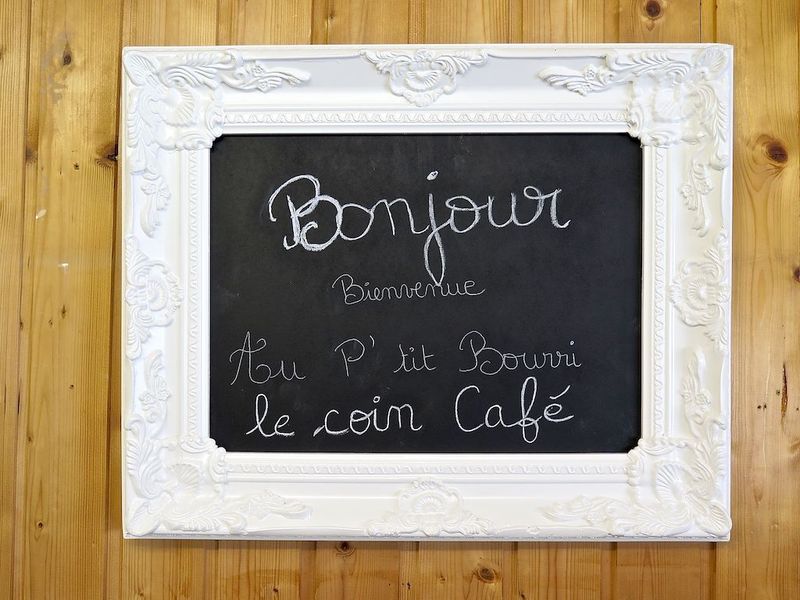 Bonjour
Bienvenue
Au P'tit Bourri
le coin Café